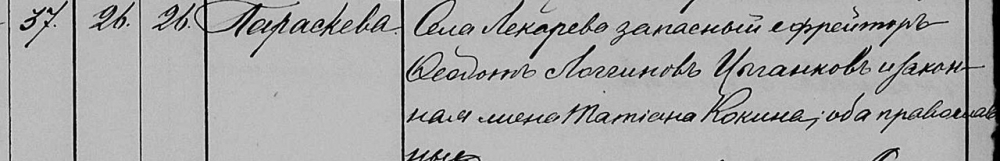 37. 26. 26. Параскева. Села Лекарево запасный ефрейторъ
Ѳеодотъ Логгиновъ Цыганковъ и закон-
ная жена Татіана Кокина; оба православ
ные